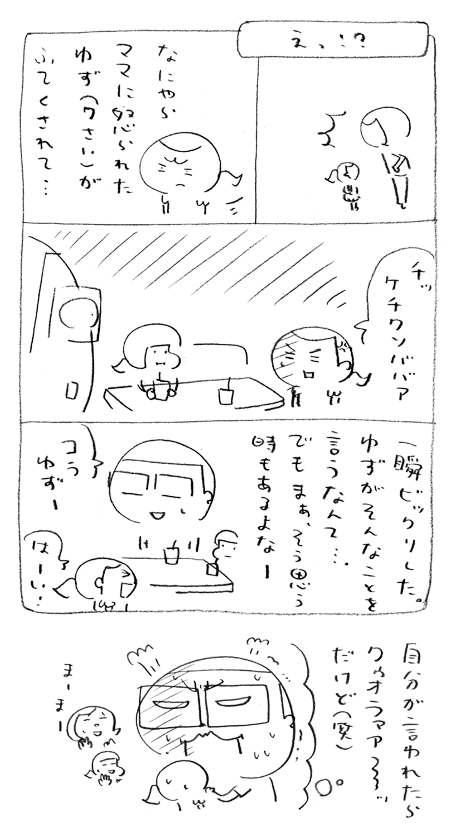 えっ!?
なにやら
ママに怒られた
ゆず(7さい)が
ふてくされて…
チッ
ケチクソババァ
一瞬ビックリした。
ゆずがそんなことを
言うなんて…
でもまぁ、そう思う
時もあるよなー
コラ
ゆずー
はーい…
自分が言われたら
クゥオラァァ〜〜ッ
だけど(笑)
まー
まー